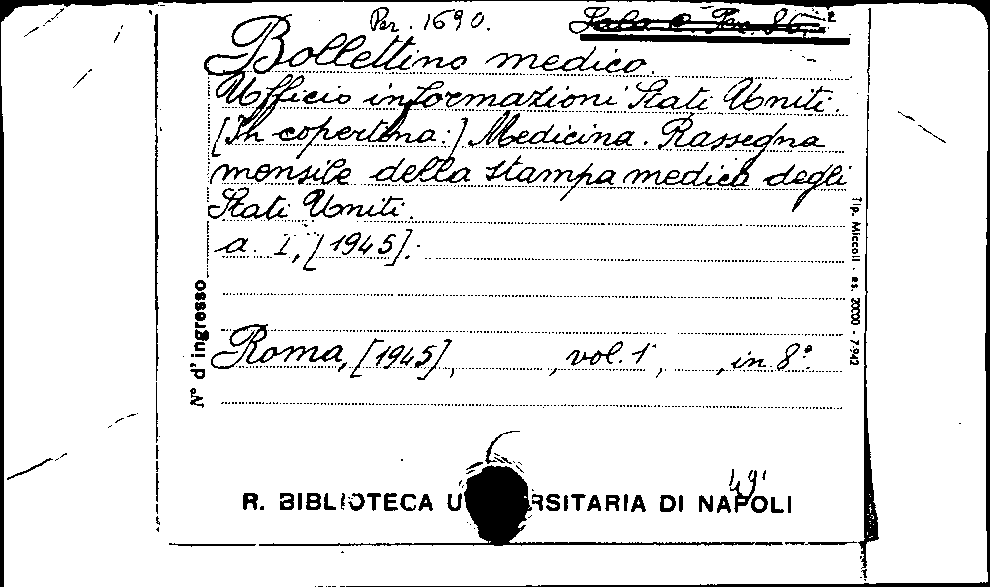 Per. 1690.
Bollettino medico.
Ufficio informazioni Stati Uniti.
[In copertina:] Medicina. Rassegna
mensile della stampa medica degli
Stati Uniti.
a. I, [1945].
Roma, [1945], , vol. 1 , , in 8º.
N° d' ingresso
Tip. Miccoli - es. 20000 - 7-942
49'
R. BIBLIOTECA U RSITARIA DI NAPOLI